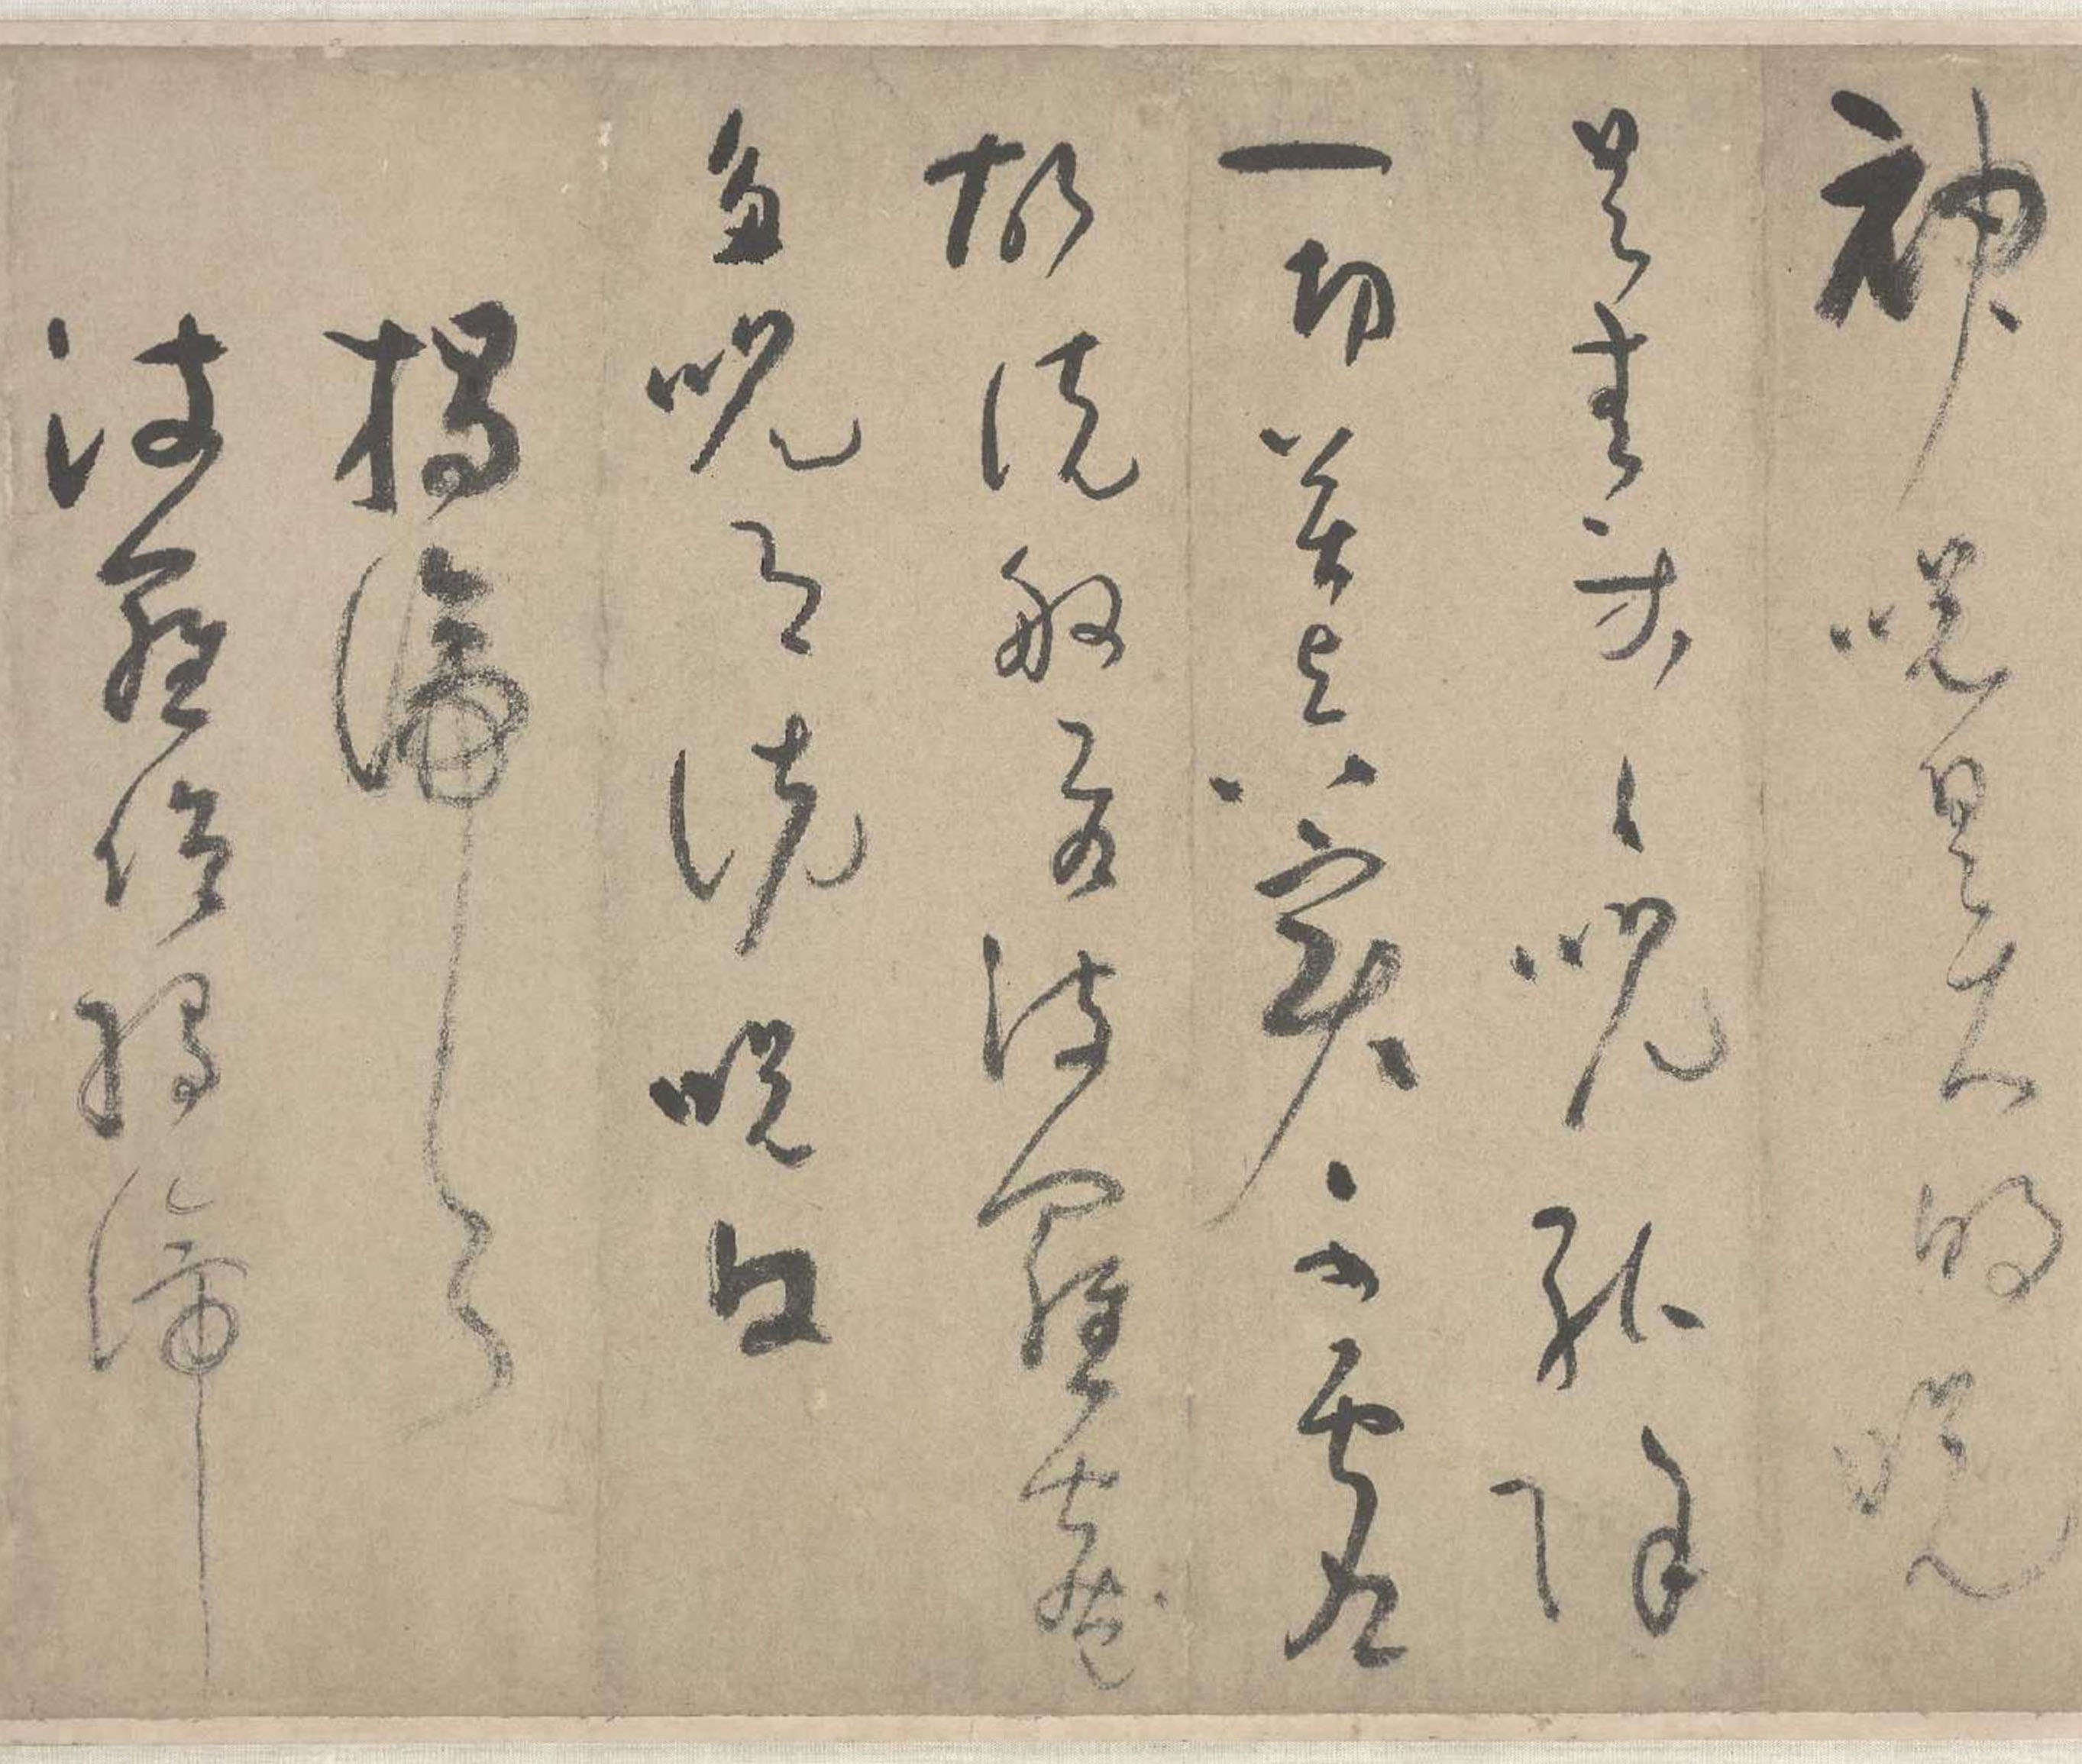 神咒是大明咒
是無等々咒能除
一切苦真實不虛
故說般若波羅蜜
多咒即說咒曰
揭諦々々
波羅僧揭諦